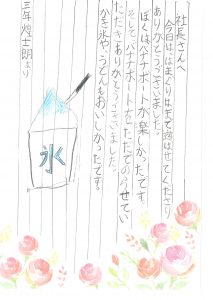 社長さんへ
今日は、はまぐりはまで遊ばせてくださり
ありがとうございました。
ぼくはバナナボートが楽しかったです。
そして、バナナボートをただでのらせてい
ただきありがとうございました。
かき氷や、うどんもおいしかったです。
氷
三年 煌士朗より